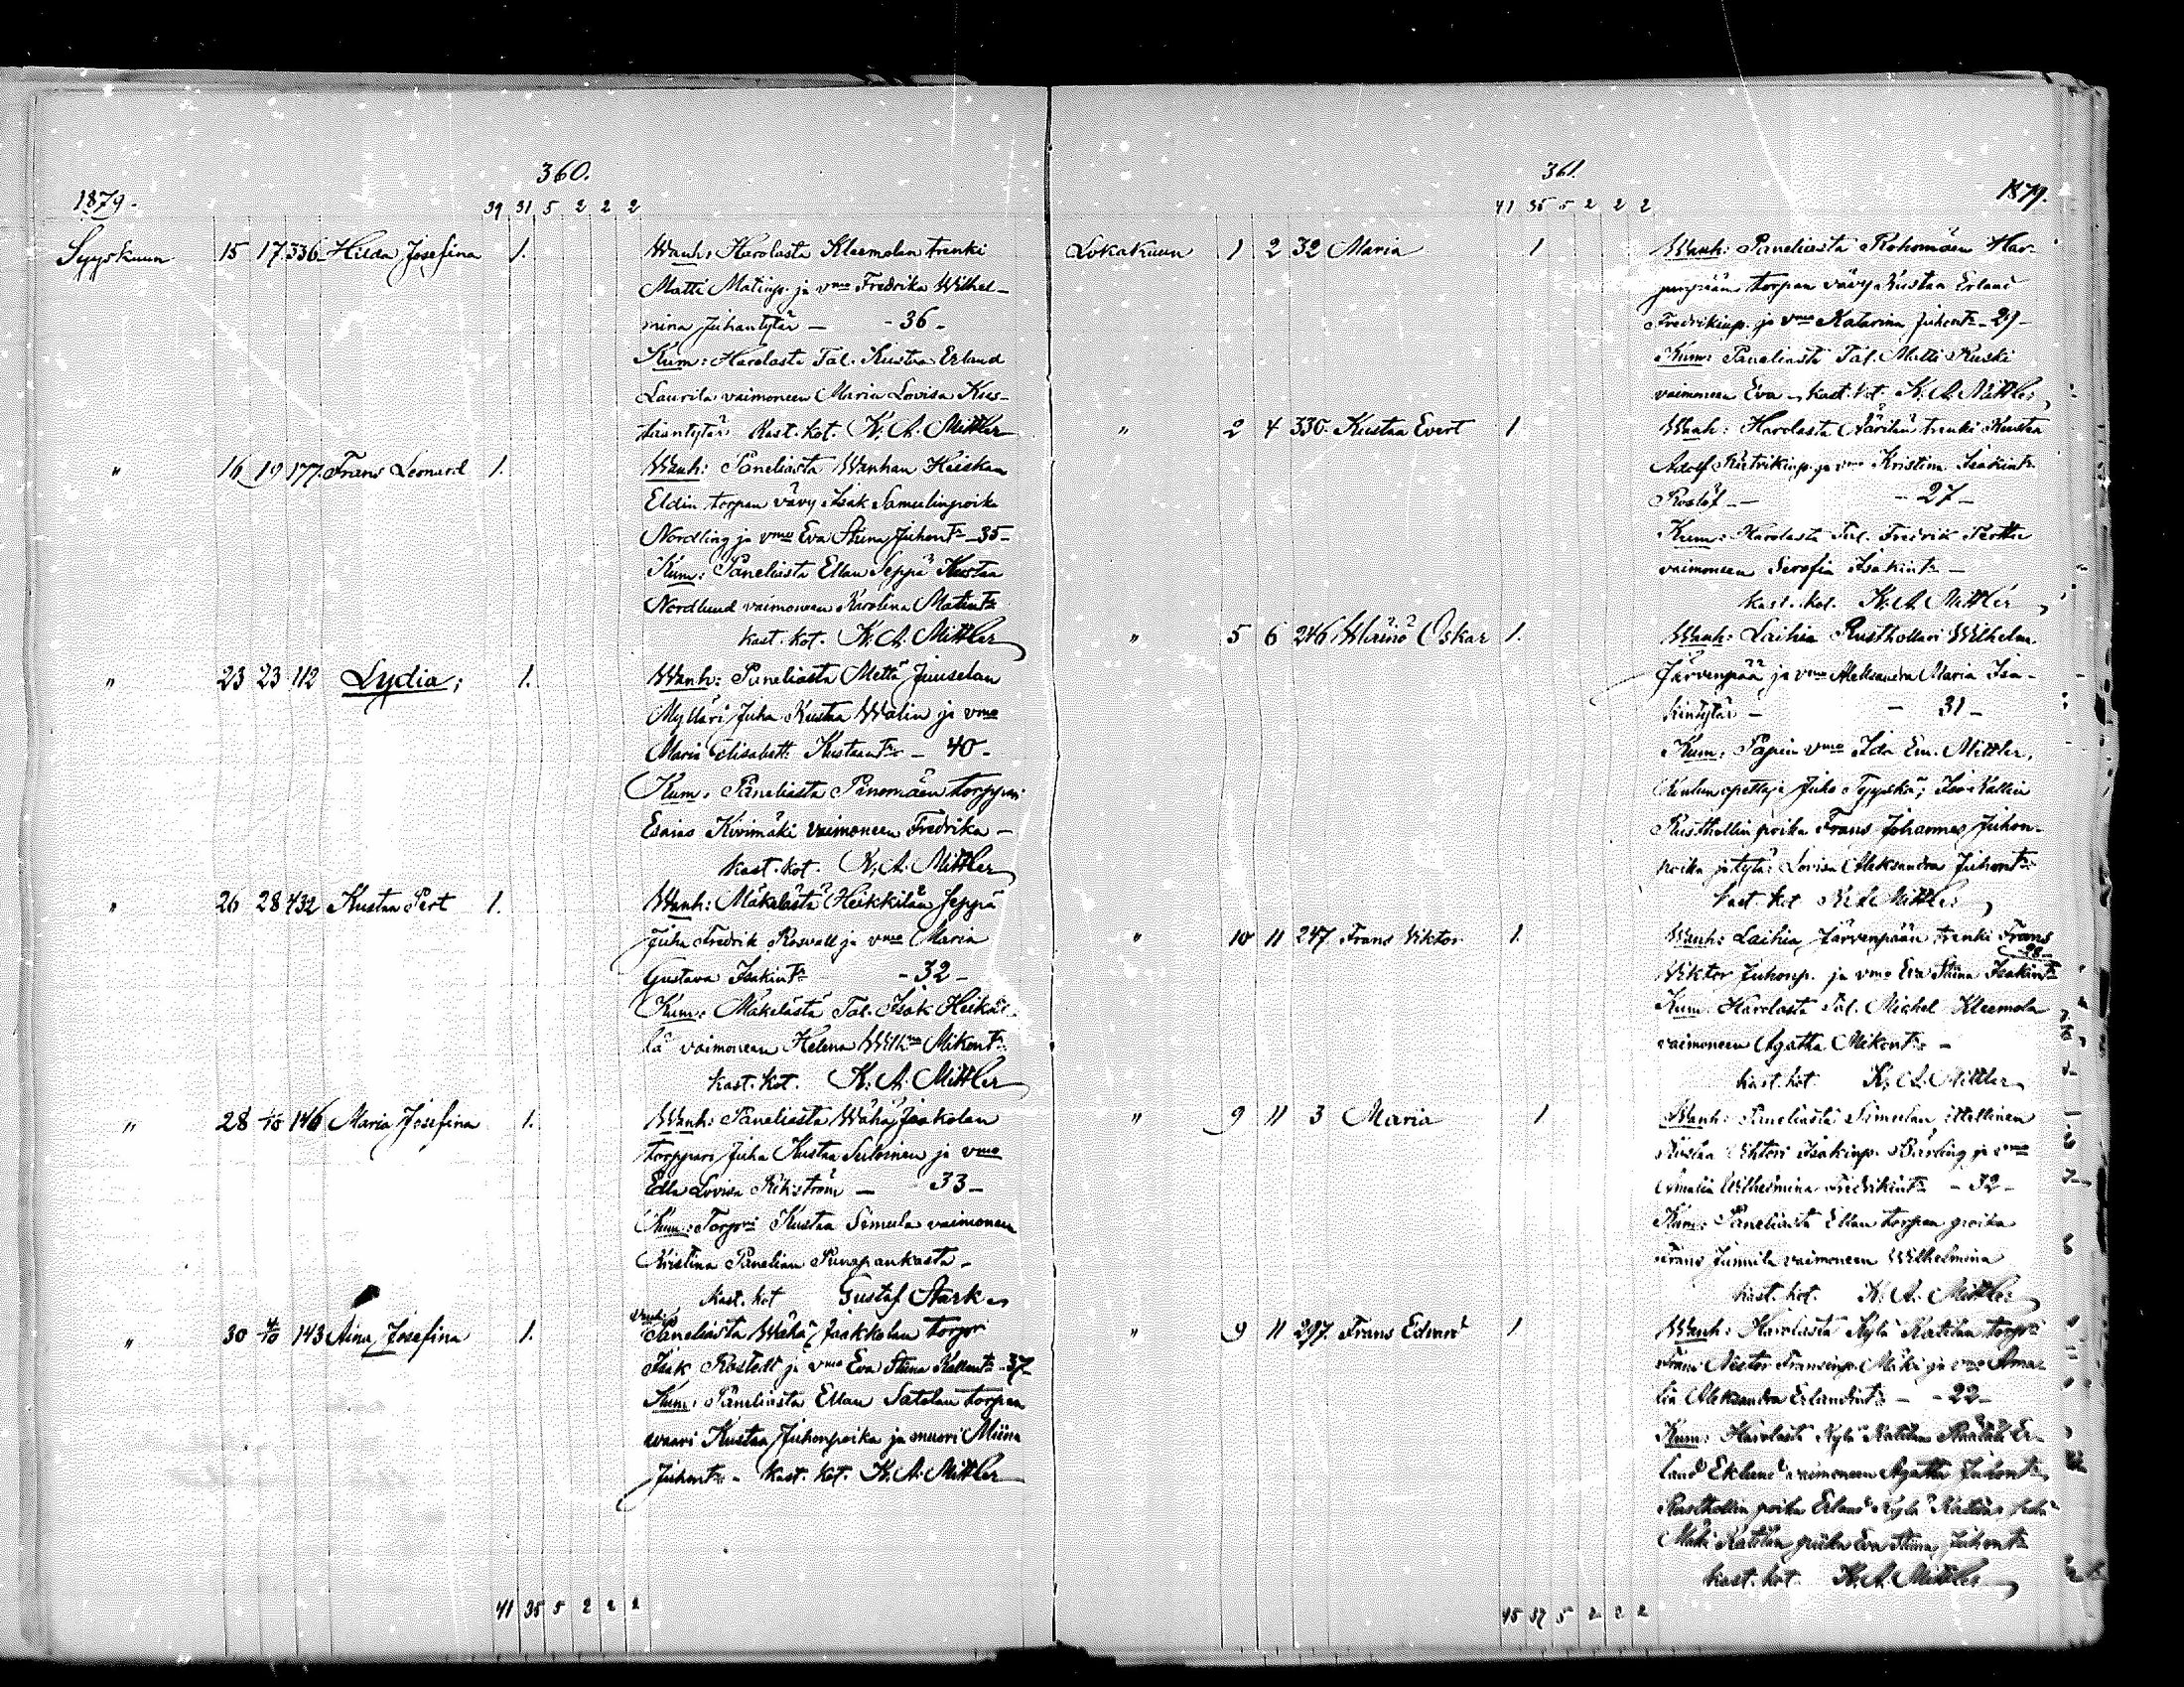 360.
1879.
39 31 5 2 2 2
Syyskuun 15 17 336 Hilda Josefina 1. Wanh: Harolasta Kleemolan trenki
Matti Matinp. ja vmo Fredrika Wilhel-
mina Juhantytär — - 36 -
Kum: Harolasta Tal. Kustaa Erland
Laurila vaimoneen Maria Lovisa Kus-
taantytär Kast. kot. K. A. Mittler
" 16 19 177. Frans Leonard 1. Wanh: Paneliasta Wanhan Heiskan
Eldin torpan vävy Isak Samulinpoika
Nordling ja vmo Eva Stina Juhontr - 35 -
Kum: Paneliasta Ellan Seppä Kustaa
Nordlund vaimoneen Karolina Matintr
kast. kot. K. A. Mittler
" 23 23 112 Lydia; 1. Wanh: Paneliasta Mettä Juuselan
Mylläri Juha Kustaa Walin ja vmo
Maria Elisabett Kustaantr - 40 -
Kum: Paneliasta Panomäen torppari
Esaias Kivimäki vaimoneen Fredrika —
kast. kot. K. A. Mittler
" 26 28 432 Kustaa Pert 1. Wanh: Mäkelästä Heikkilän Seppä
Juha Fredrik Rosvall ja vmo Maria
Gustava Isakintr - 32 -
Kum: Mäkelästä Tal. Isak Heikki-
lä vaimoneen Helena Wilhma Mikontr
kast. kot. K. A. Mittler
" 28 1/10 146 Maria Josefina 1. Wanh: Paneliasta Wähä Jaakolan
torppari Juha Kustaa Suloinen ja vmo
Edla Lovisa Rikström — 33 -
Kum: Torpri Kustaa Simula vaimoneen
Kristina Panelian Punapaukasta -
Kast. kot Gustaf Stark
" 30 4/10 143 Aina Josefina 1. Wanh: Paneliasta Wähä Jaakkolan torpri
Isak Rostedt ja vmo Eva Stina Kallentr - 37 -
Kum: Paneliasta Ellan Satolan torpan
waari Kustaa Juhonpoika ja muori Miina
Juhontr - Kast. kot. K. A. Mittler
41 35 5 2 2 2
361.
1879.
41 35 5 2 2 2
Lokakuun 1 2 32 Maria 1 Wanh: Paneliasta Rohomäen Har-
junpään torpan vävy Kustaa Erland
Fredrikinp. ja vmo Katarina Juhontr - 29 -
Kum: Paneliasta Tal. Matti Kuski
vaimoneen Eva - kast. kot. K. A. Mittler
" 2 4 330 Kustaa Evert 1. Wanh: Harolasta Äärilän trenki Kustaa
Adolf ja vmo Kristina Isakintr
- 27 -
Kum: Harolasta Tal. Fredrik Perttu
vaimoneen Serafia Isakintr -
kast. kot. K. A. Mittler
" 5 6 246 Wäinö Oskar 1. Wanh: Laihia Rusthollari Wilhelm
Järvenpää ja vmo Aleksandra Maria Isa-
kintytär - - 31 -
Kum: Papin vmo Ida Em. Mittler,
Koulunopettaja Juho Tyyskä; Iso-Kallin
Rusthollin poika Frans Johannes Juhon-
poika ja tytär Lovisa Aleksandra Juhontr
kast. kot K. A. Mittler
" 10 11 247 Frans Viktor 1. Wanh: Laihia Järvenpään trenki Frans
Viktor Juhonp. ja vmo Eva Stina Isakintr
Kum: Harolasta Tal. Michel Kleemola
vaimoneen Agatha Mikontr -
kast. kot K. A. Mittler
" 9 11 3 Maria 1 Wanh: Paneliasta Simulan itsellinen
Kustaa Viktori Isakinp. Bärling ja vmo
Amalia Wilhelmina Fredrikintr - 32 -
Kum: Paneliasta Ellan torpan poika
Frans Junnila vaimoneen Wilhelmina
kast. kot. K. A. Mittler
" 9 11 297. Frans Edvard 1 Wanh: Harolasta Kylä Katilan torpri
Frans Nestor Fransinp. Mäki ja vmo Ama-
lia Aleksandra Erlandintr - - 22 -
Kum: Harolasta Kylä Katilan Räätäli Er-
land Eklund vaimoneen Agatha Juhontr
Rusthollin poika Erland Kylä Katila sekä
Mäki Katilan piika Eva Stina Juhontr
kast. kot. K. A. Mittler
45 37 5 2 2 2